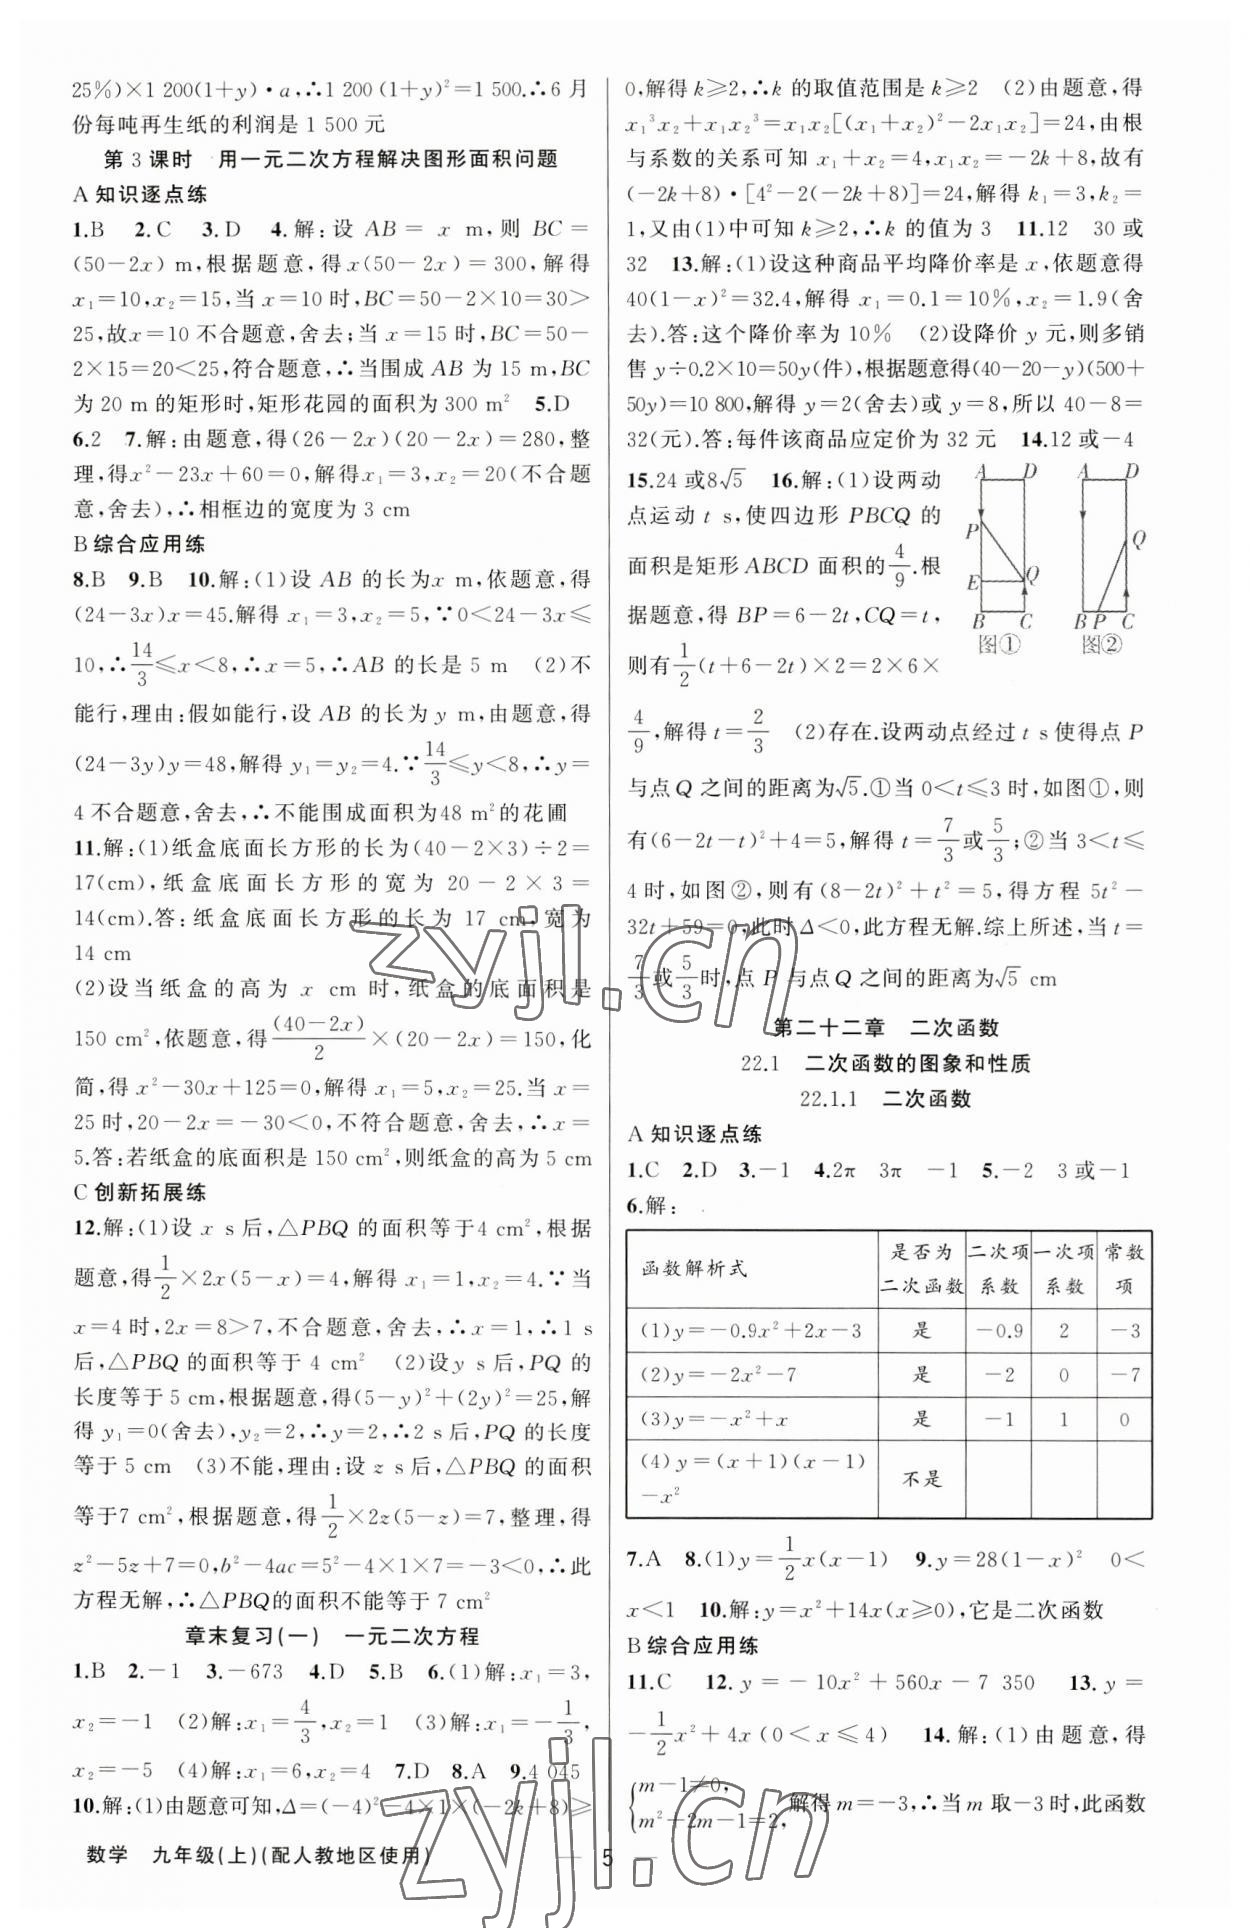 25%)×1 200(1+y)·a,∴1 200(1+y)²=1 500.∴6 月
份每吨再生纸的利润是 1 500 元
第 3 课时 用一元二次方程解决图形面积问题
A 知识逐点练
1.B 2.C 3.D 4.解:设 AB= x m,则 BC=
(50-2x) m,根据题意,得x(50-2x)=300,解得
x₁=10,x₂=15,当x=10时,BC=50-2×10=30>
25,故x=10 不合题意,舍去;当 x=15 时,BC=50-
2×15=20<25,符合题意,∴当围成 AB 为 15 m,BC
为 20 m的矩形时,矩形花园的面积为300 m² 5.D
6.2 7.解:由题意,得(26-2x)(20-2x)=280,整
理,得x²-23x+60=0,解得x₁=3,x₂=20(不合题
意,舍去),∴相框边的宽度为 3 cm
B 综合应用练
8.B 9.B 10.解:(1)设 AB 的长为x m,依题意,得
(24-3x)x=45.解得 x₁=3,x₂=5,∵0<24-3x≤
10,∴14/3≤x<8,∴x=5,∴AB 的长是 5 m (2)不
能行,理由:假如能行,设 AB 的长为 y m,由题意,得
(24-3y)y=48,解得 y₁=y₂=4.∵14/3≤y<8,∴y=
4 不合题意,舍去,∴不能围成面积为48 m²的花圃
11.解:(1)纸盒底面长方形的长为(40-2×3)÷2=
17(cm),纸盒底面长方形的宽为 20-2×3=
14(cm).答:纸盒底面长方形的长为 17 cm,宽为
14 cm
(2)设当纸盒的高为 x cm 时,纸盒的底面积是
150 cm²,依题意,得(40-2x)/2×(20-2x)=150,化
简,得 x²-30x+125=0,解得x₁=5,x₂=25.当x=
25时,20-2x=-30<0,不符合题意,舍去,∴x=
5.答:若纸盒的底面积是150 cm²,则纸盒的高为5 cm
C 创新拓展练
12.解:(1)设 x s 后,△PBQ 的面积等于4 cm²,根据
题意,得1/2×2x(5-x)=4,解得 x₁=1,x₂=4.∵当
x=4时,2x=8>7,不合题意,舍去,∴x=1,∴1 s
后,△PBQ 的面积等于 4 cm² (2)设y s后,PQ 的
长度等于5 cm,根据题意,得(5-y)²+(2y)²=25,解
得 y₁=0(舍去),y₂=2,∴y=2,∴2 s后,PQ 的长度
等于 5 cm (3)不能,理由:设 z s后,△PBQ 的面积
等于7 cm²,根据题意,得1/2×2z(5-z)=7,整理,得
z²-5z+7=0,b²-4ac=5²-4×1×7=-3<0,∴此
方程无解,∴△PBQ的面积不能等于7 cm²
章末复习(一) 一元二次方程
1.B 2.-1 3.-673 4.D 5.B 6.(1)解:x₁=3,
x₂=-1 (2)解:x₁=4/3,x₂=1 (3)解:x₁=-1/3,
x₂=-5 (4)解:x₁=6,x₂=4 7.D 8.A 9.4 045
10.解:(1)由题意可知,Δ=(-4)²-4×1×(-2k+8)≥
0,解得k≥2,∴k 的取值范围是 k≥2 (2)由题意,得
x₁³x₂+x₁x₂³=x₁x₂[(x₁+x₂)²-2x₁x₂]=24,由根
与系数的关系可知 x₁+x₂=4,x₁x₂=-2k+8,故有
(-2k+8)·[4²-2(-2k+8)]=24,解得 k₁=3,k₂=
1,又由(1)中可知 k≥2,∴k 的值为 3 11.12 30 或
32 13.解:(1)设这种商品平均降价率是 x,依题意得
40(1-x)²=32.4,解得 x₁=0.1=10%,x₂=1.9(舍
去).答:这个降价率为 10% (2)设降价 y 元,则多销
售 y÷0.2×10=50y(件),根据题意得(40-20-y)(500+
50y)=10 800,解得 y=2(舍去)或 y=8,所以 40-8=
32(元).答:每件该商品应定价为 32 元 14.12 或-4
15.24 或8√5 16.解:(1)设两动
点运动 t s,使四边形 PBCQ 的
面积是矩形 ABCD 面积的4/9.根
据题意,得 BP=6-2t,CQ=t,
则有1/2(t+6-2t)×2=2×6×
A D
P
E Q
B C
图①
A D
Q
B P C
图②
4/9,解得 t=2/3 (2)存在.设两动点经过 t s使得点 P
与点Q 之间的距离为√5.①当 0<t≤3 时,如图①,则
有(6-2t-t)²+4=5,解得 t=7/3或5/3;②当 3<t≤
4 时,如图②,则有(8-2t)²+t²=5,得方程 5t²-
32t+59=0,此时 Δ<0,此方程无解.综上所述,当 t=
7/3或5/3时,点 P 与点 Q 之间的距离为√5 cm
第二十二章 二次函数
22.1 二次函数的图象和性质
22.1.1 二次函数
A 知识逐点练
1.C 2.D 3.-1 4.2π 3π -1 5.-2 3 或-1
6.解:
函数解析式 是否为二次函数 二次项系数 一次项系数 常数项
(1)y=-0.9x²+2x-3 是 -0.9 2 -3
(2)y=-2x²-7 是 -2 0 -7
(3)y=-x²+x 是 -1 1 0
(4)y=(x+1)(x-1)-x² 不是
7.A 8.(1)y=1/2x(x-1) 9.y=28(1-x)² 0<
x<1 10.解:y=x²+14x(x≥0),它是二次函数
B 综合应用练
11.C 12. y=-10x²+560x-7 350 13. y=
-1/2x²+4x(0<x≤4) 14.解:(1)由题意,得
{m-1≠0, m²+2m-1=2, 解得 m=-3,∴当 m 取-3时,此函数
数学 九年级(上)(配人教地区使用)
— 5 —
zyjl.cn
zyjl.cn